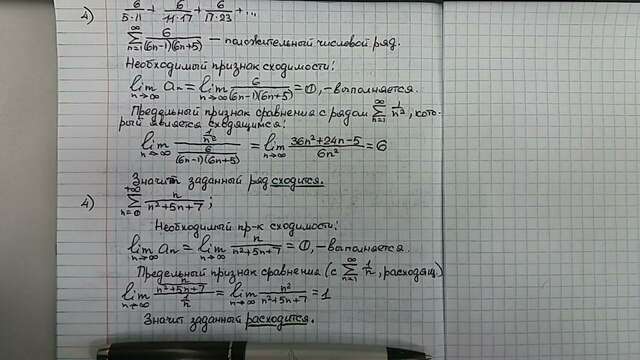 2) 6/(5·11) + 6/(11·17) + 6/(17·23) + ...
∑_{n=1}^{∞} 6/((6n-1)(6n+5)) — положительный числовой ряд.
Необходимый признак сходимости:
lim_{n→∞} a_n = lim_{n→∞} 6/((6n-1)(6n+5)) = 0, – выполняется.
Предельный признак сравнения с рядом ∑_{n=1}^{∞} 1/n², кото-
рый является сходящимся:
lim_{n→∞} (1/n²)/(6/((6n-1)(6n+5))) = lim_{n→∞} (36n²+24n-5)/(6n²) = 6
Значит заданный ряд сходится.
4) ∑_{n=0}^{+∞} n/(n²+5n+7);
Необходимый пр-к сходимости:
lim_{n→∞} a_n = lim_{n→∞} n/(n²+5n+7) = 0, – выполняется.
Предельный признак сравнения (с ∑_{n=1}^{∞} 1/n, расходящ.)
lim_{n→∞} (n/(n²+5n+7))/(1/n) = lim_{n→∞} n²/(n²+5n+7) = 1
Значит заданный расходится.